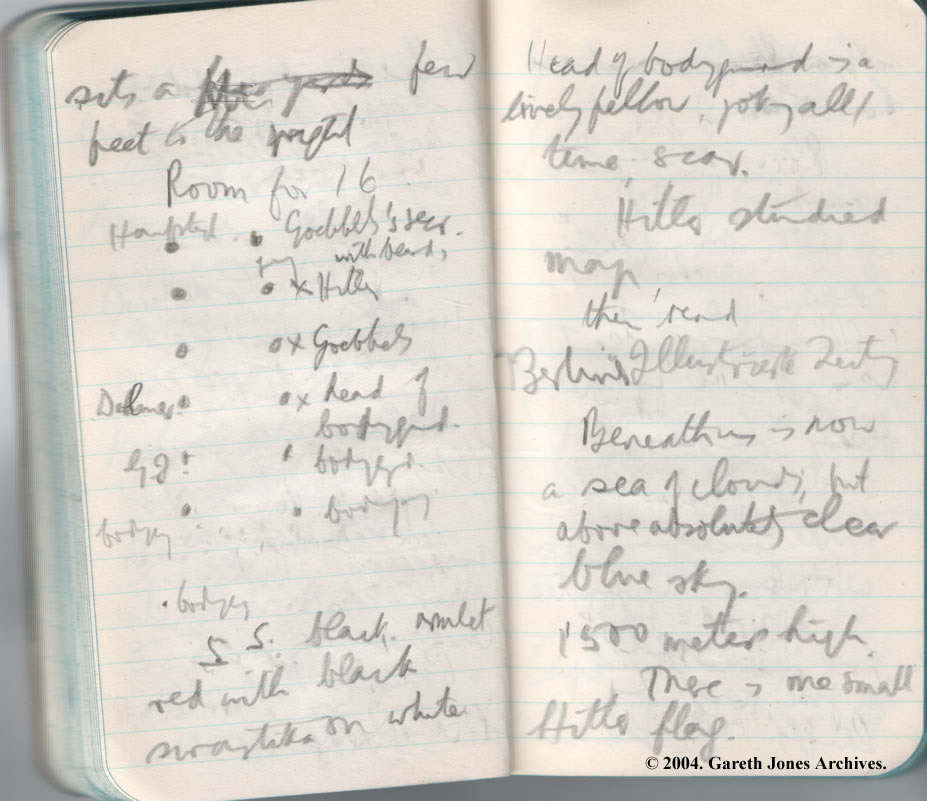 sits a few yards few
feet to the right
Room for 16
Goebbels's sec.
with beard,
x Hitler
x Goebbels
x head of
bodyguard.
G J. bodygd.
bodyg
bodyg
bodyg
S S. black. armlet
red with black
swastika on white
Head of bodyguard is a
lively fellow, joking all/
time, scar.
Hitler studied
map
then read
Berliner Illustrierte Zeitg
Beneath us is now
a sea of clouds, but
above absolutely clear
blue sky.
1500 meters high.
There is one small
Hitler flag.
© 2004. Gareth Jones Archives.